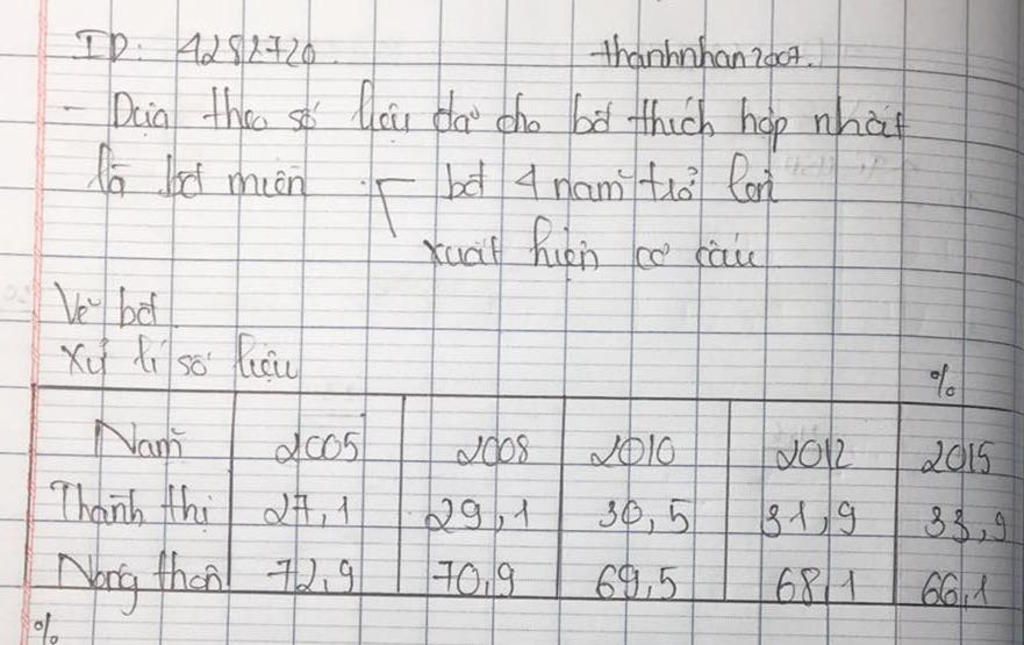 ID: 4282720 thanhnhan2007.
- Dựa theo số liệu đã cho bđ thích hợp nhất
là bđ miền bđ 4 năm trở lại
xuất hiện cơ cấu
Vẽ bđ
Xử lí số liệu
%
Năm 2005 2008 2010 2012 2015
Thành thị 27,1 29,1 30,5 31,9 33,9
Nông thôn 72,9 70,9 69,5 68,1 66,1
%